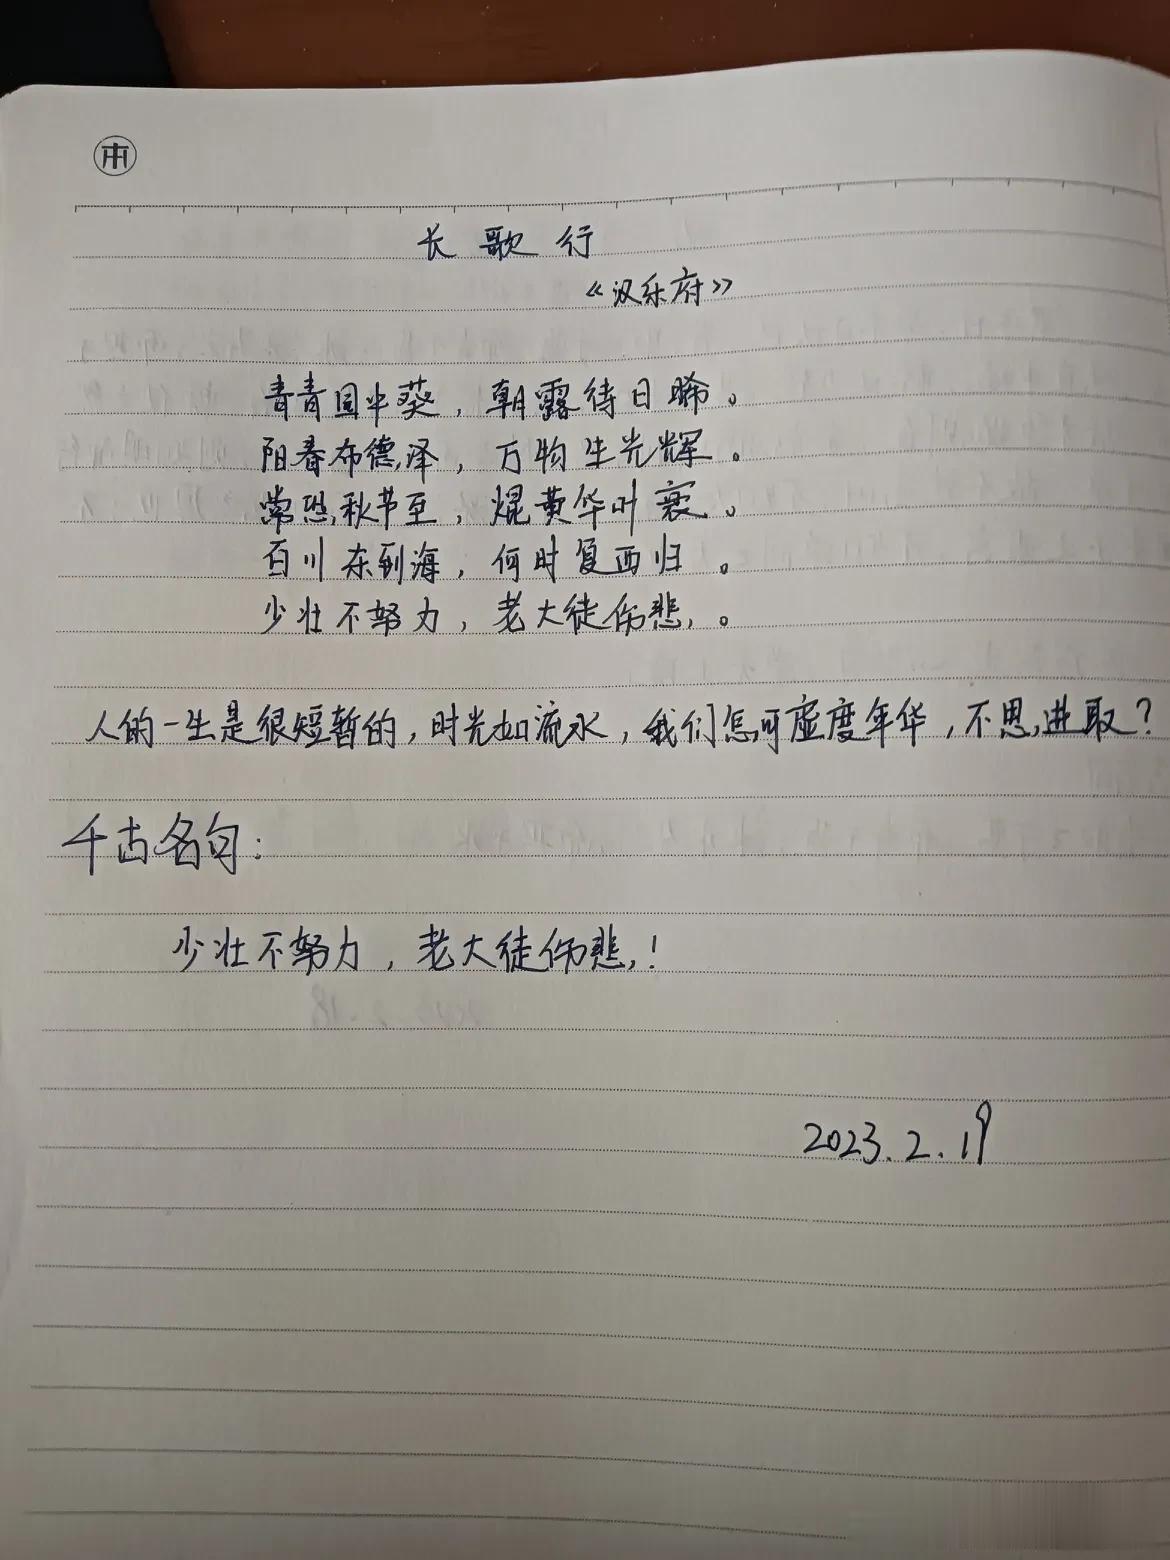 长歌行
《汉乐府》
青青园中葵，朝露待日晞。
阳春布德泽，万物生光辉。
常恐秋节至，焜黄华叶衰。
百川东到海，何时复西归。
少壮不努力，老大徒伤悲。
人的一生是很短暂的，时光如流水，我们怎可虚度年华，不思进取？
千古名句：
少壮不努力，老大徒伤悲！
2023.2.19